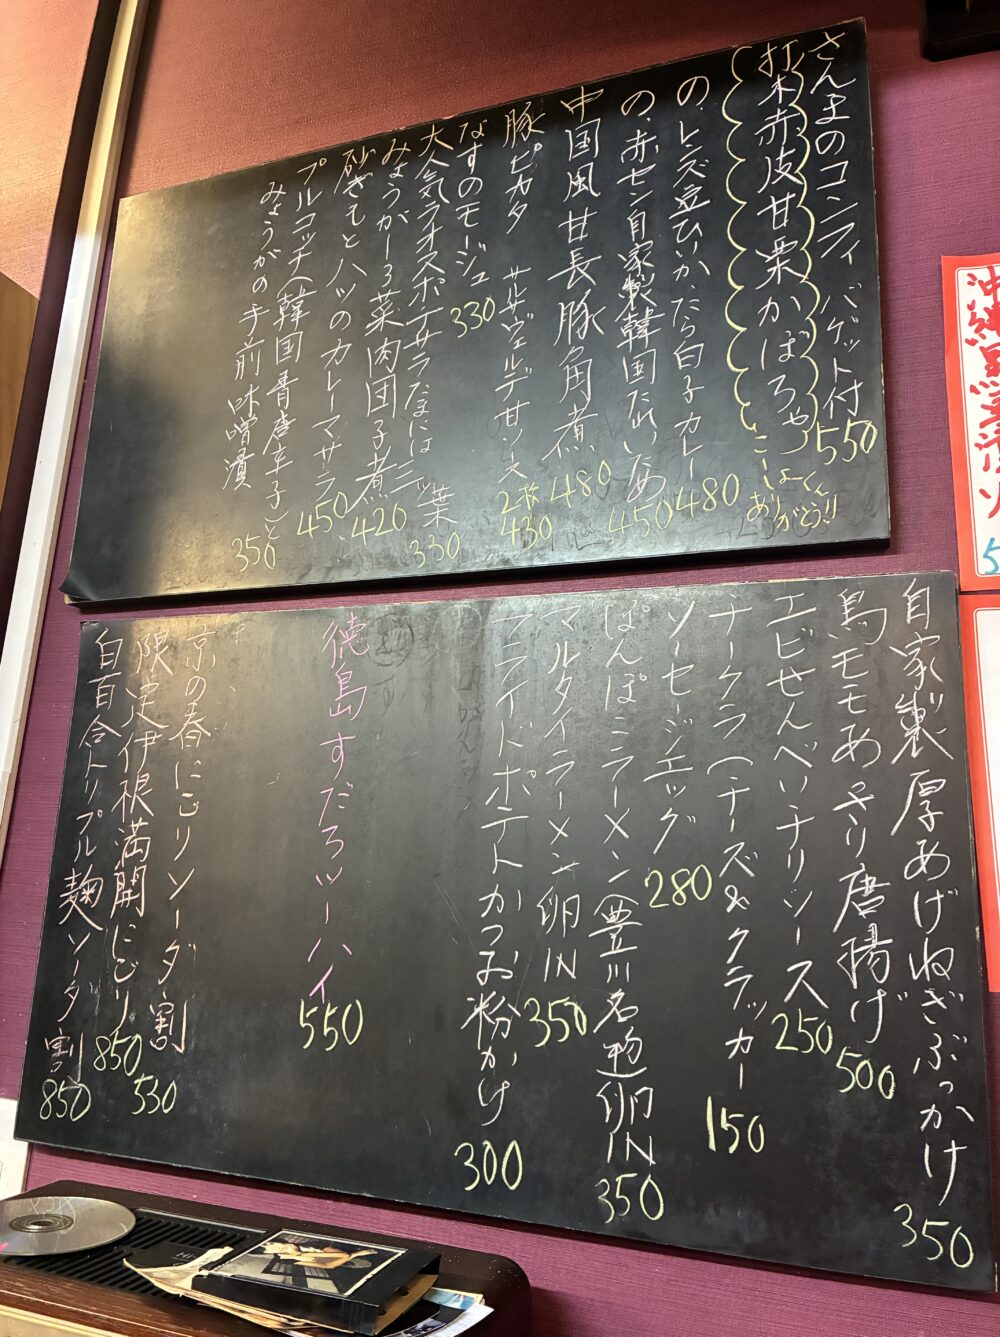 さんまのコンフィ バゲット付 550
打木赤皮甘栗かぼちゃ
と こしょーくん
ありがとう!!
の、レンズ豆ひいか、たら白子カレー 480
の、赤セン自家製韓国だれいため 450
中国風甘長豚角煮 480
豚ピカタ サルサヴェルデ甘ソース 2枚 430
なすのモージュ 330
大人気ラオスポテサラだなには三ッ葉 330
みょうがーろ菜肉団子煮 420
砂ぎもとハツのカレーマサラ 450
プルコッチ(韓国青唐辛子)と
みょうがの手前味噌漬 350
自家製厚あげねぎぶっかけ 350
鳥モモあっさり唐揚げ 500
エビせんべいチリソース 250
チークラ(チーズ&クラッカー 150
ソーセージエッグ 280
ぽんぽこラーメン(豊川名物)卵IN 350
マルタイラーメン卵IN 350
フライドポテトかつお粉かけ 300
徳島すだちッーハイ 550
京の春にごりソーダ割 530
限定伊根満開にごり 850
白百合トリプル麹ソーダ割 850
沖縄